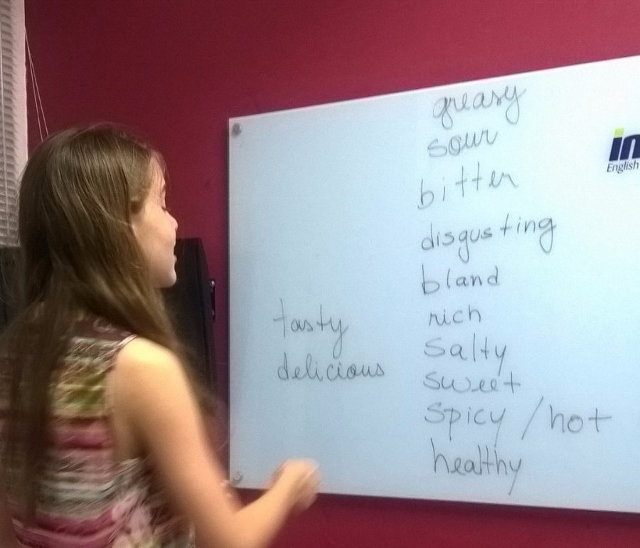 greasy
sour
bitter
disgusting
bland
rich
salty
sweet
spicy / hot
healthy
tasty
delicious
in
English